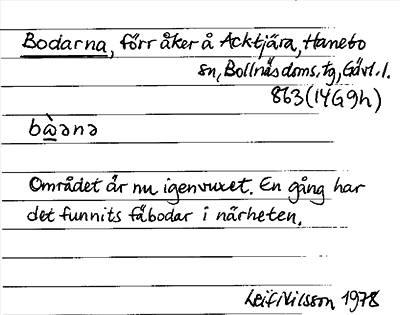 Bodarna, förr åker å Acktjära, Hanebo
sn, Bollnäs doms. tg, Gävl. l.
863 (14G9h)
bὼ̱ənə
Området är nu igenvuxet. En gång har
det funnits fäbodar i närheten.
Leif Nilsson 1978